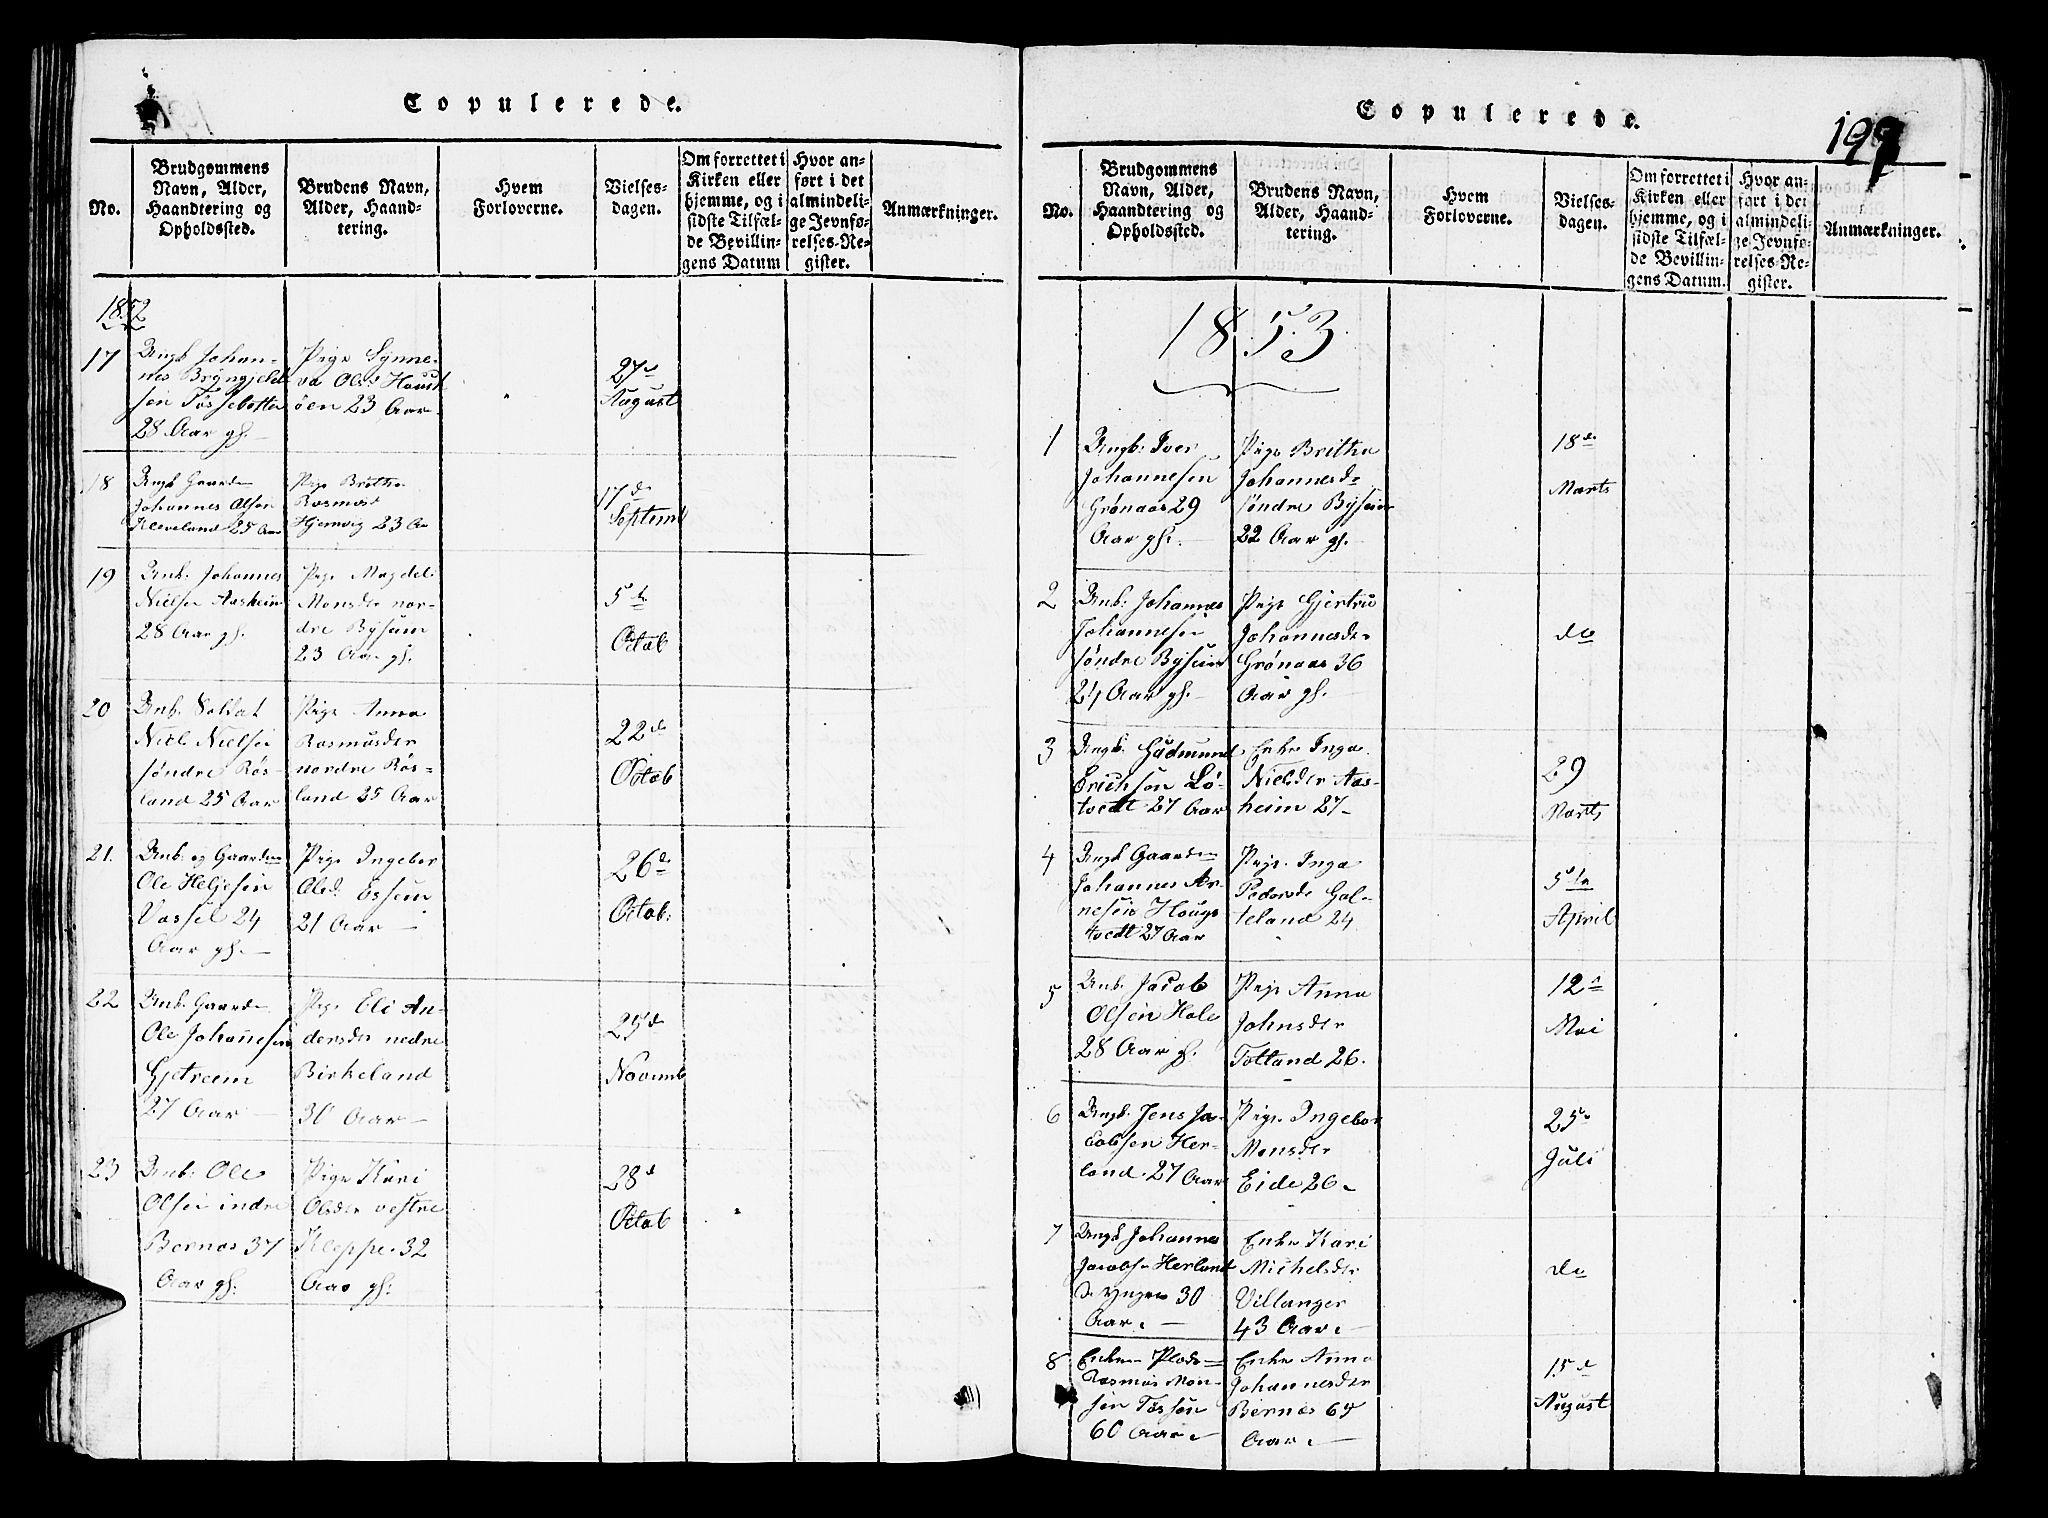 Copulerede.
No.
Brudgommens
Navn, Alder,
Haandtering og
Opholdssted.
Brudens Navn,
Alder, Haand-
tering.
Hvem
Forloverne.
Vielses-
dagen.
Om forrettet i
Kirken eller
hjemme, og i
sidste Tilfæl-
de Bevillin-
gens Datum
Hvor an-
ført i det
almindeli-
ge Jevnfø-
relses-Re-
gister.
Anmærkninger.
1852
17
Ungk Johan-
nes Bryngjeld
sen Tössebotten
28 Aar gl.
Pige Synne-
va Olsd
öen 23 Aar
27de
August
18
Ungk Gaardm
Johannes Olsen
Kleveland 25 Aar
Pige Brithe
Rasmusd
Hjemvig 23 Aa
17de
Septemb
19
Unk. Johannes
Nielsen Aasheim
28 Aar gl.
Pige Magdeli
Monsder nor-
dre Bysem
23 Aar gl.
5te
Octob
20
Unb. Soldat
Niels Nielsen
söndre Rös-
land 25 Aar
Pige Anna
Rasmusder
nordre Rös-
land 25 Aar
22de
Octob
21.
Unb: og Gaardm
Ole Heljesen
Vassel 24
Aar gl.
Pige Ingebor
Olsd. Essem
21 Aar
26de
Octob:
22
Unb. Gaardm
Ole Johannesen
Gjetreem
27 Aar
Pige Eli An-
dersder nedre
Birkeland
30 Aar
25de
Novemb
23
Unb: Ole
Olsen indre
Bernæs 37
Aar gl:
Pige Kari
Olsder vestre
Kleppe 32
Aar gl:
28de
Octob
Copulerede.
197
No.
Brudgommens
Navn, Alder,
Haandtering og
Opholdssted.
Brudens Navn,
Alder, Haand-
tering.
Hvem
Forloverne.
Vielses-
dagen.
Om forrettet i
Kirken eller
hjemme, og i
sidste Tilfæl-
de Bevillin-
gens Datum.
Hvor an-
ført i det
almindeli-
ge Jevnfø-
relses-Re-
gister.
Anmærkninger.
1853
1
Ungk: Iver
Johannesen
Grönaas 29
Aar gl.
Pige Britha
Johannesde
söndre Bysem
22 Aar gl.
18de
Marts
2
Unb: Johannes
Johannesen
söndre Bysem
24 Aar gl.
Pige Gjertru
Johannesder
Grönaas 36
Aar gl.
do
3
Ungk. Gudmund
Erichsen Lö-
tvedt 27 Aar
Enke Inga
Nielsder Aas-
heim 27
29
Marts
4
Ungk Gaardm
Johannes Ar-
nesen Hougs
tvedt 27 Aar
Pige Inga
Pedersde Hol-
teland 24
5te
April
5
Unb. Jacob
Olsen Hole
28 Aar gl.
Pige Anna
Johnsder
Totland 26.
12te
Mai
6
Ungk. Jens Ja-
cobsen Her-
land 27 Aar
Pige Ingebor
Monsder
Eide 26
25de
Juli
7
Ungk Johannes
Jacobse Herland
d. yngre 30
Aar.
Enke Kari
Michelsder
Villanger
43 Aar.
do
8
Enkem Plads
Rasmus Mon-
sen Tössen
60 Aar
Enke Anna
Johannesder
Bernæs 64
Aar.
15de
August